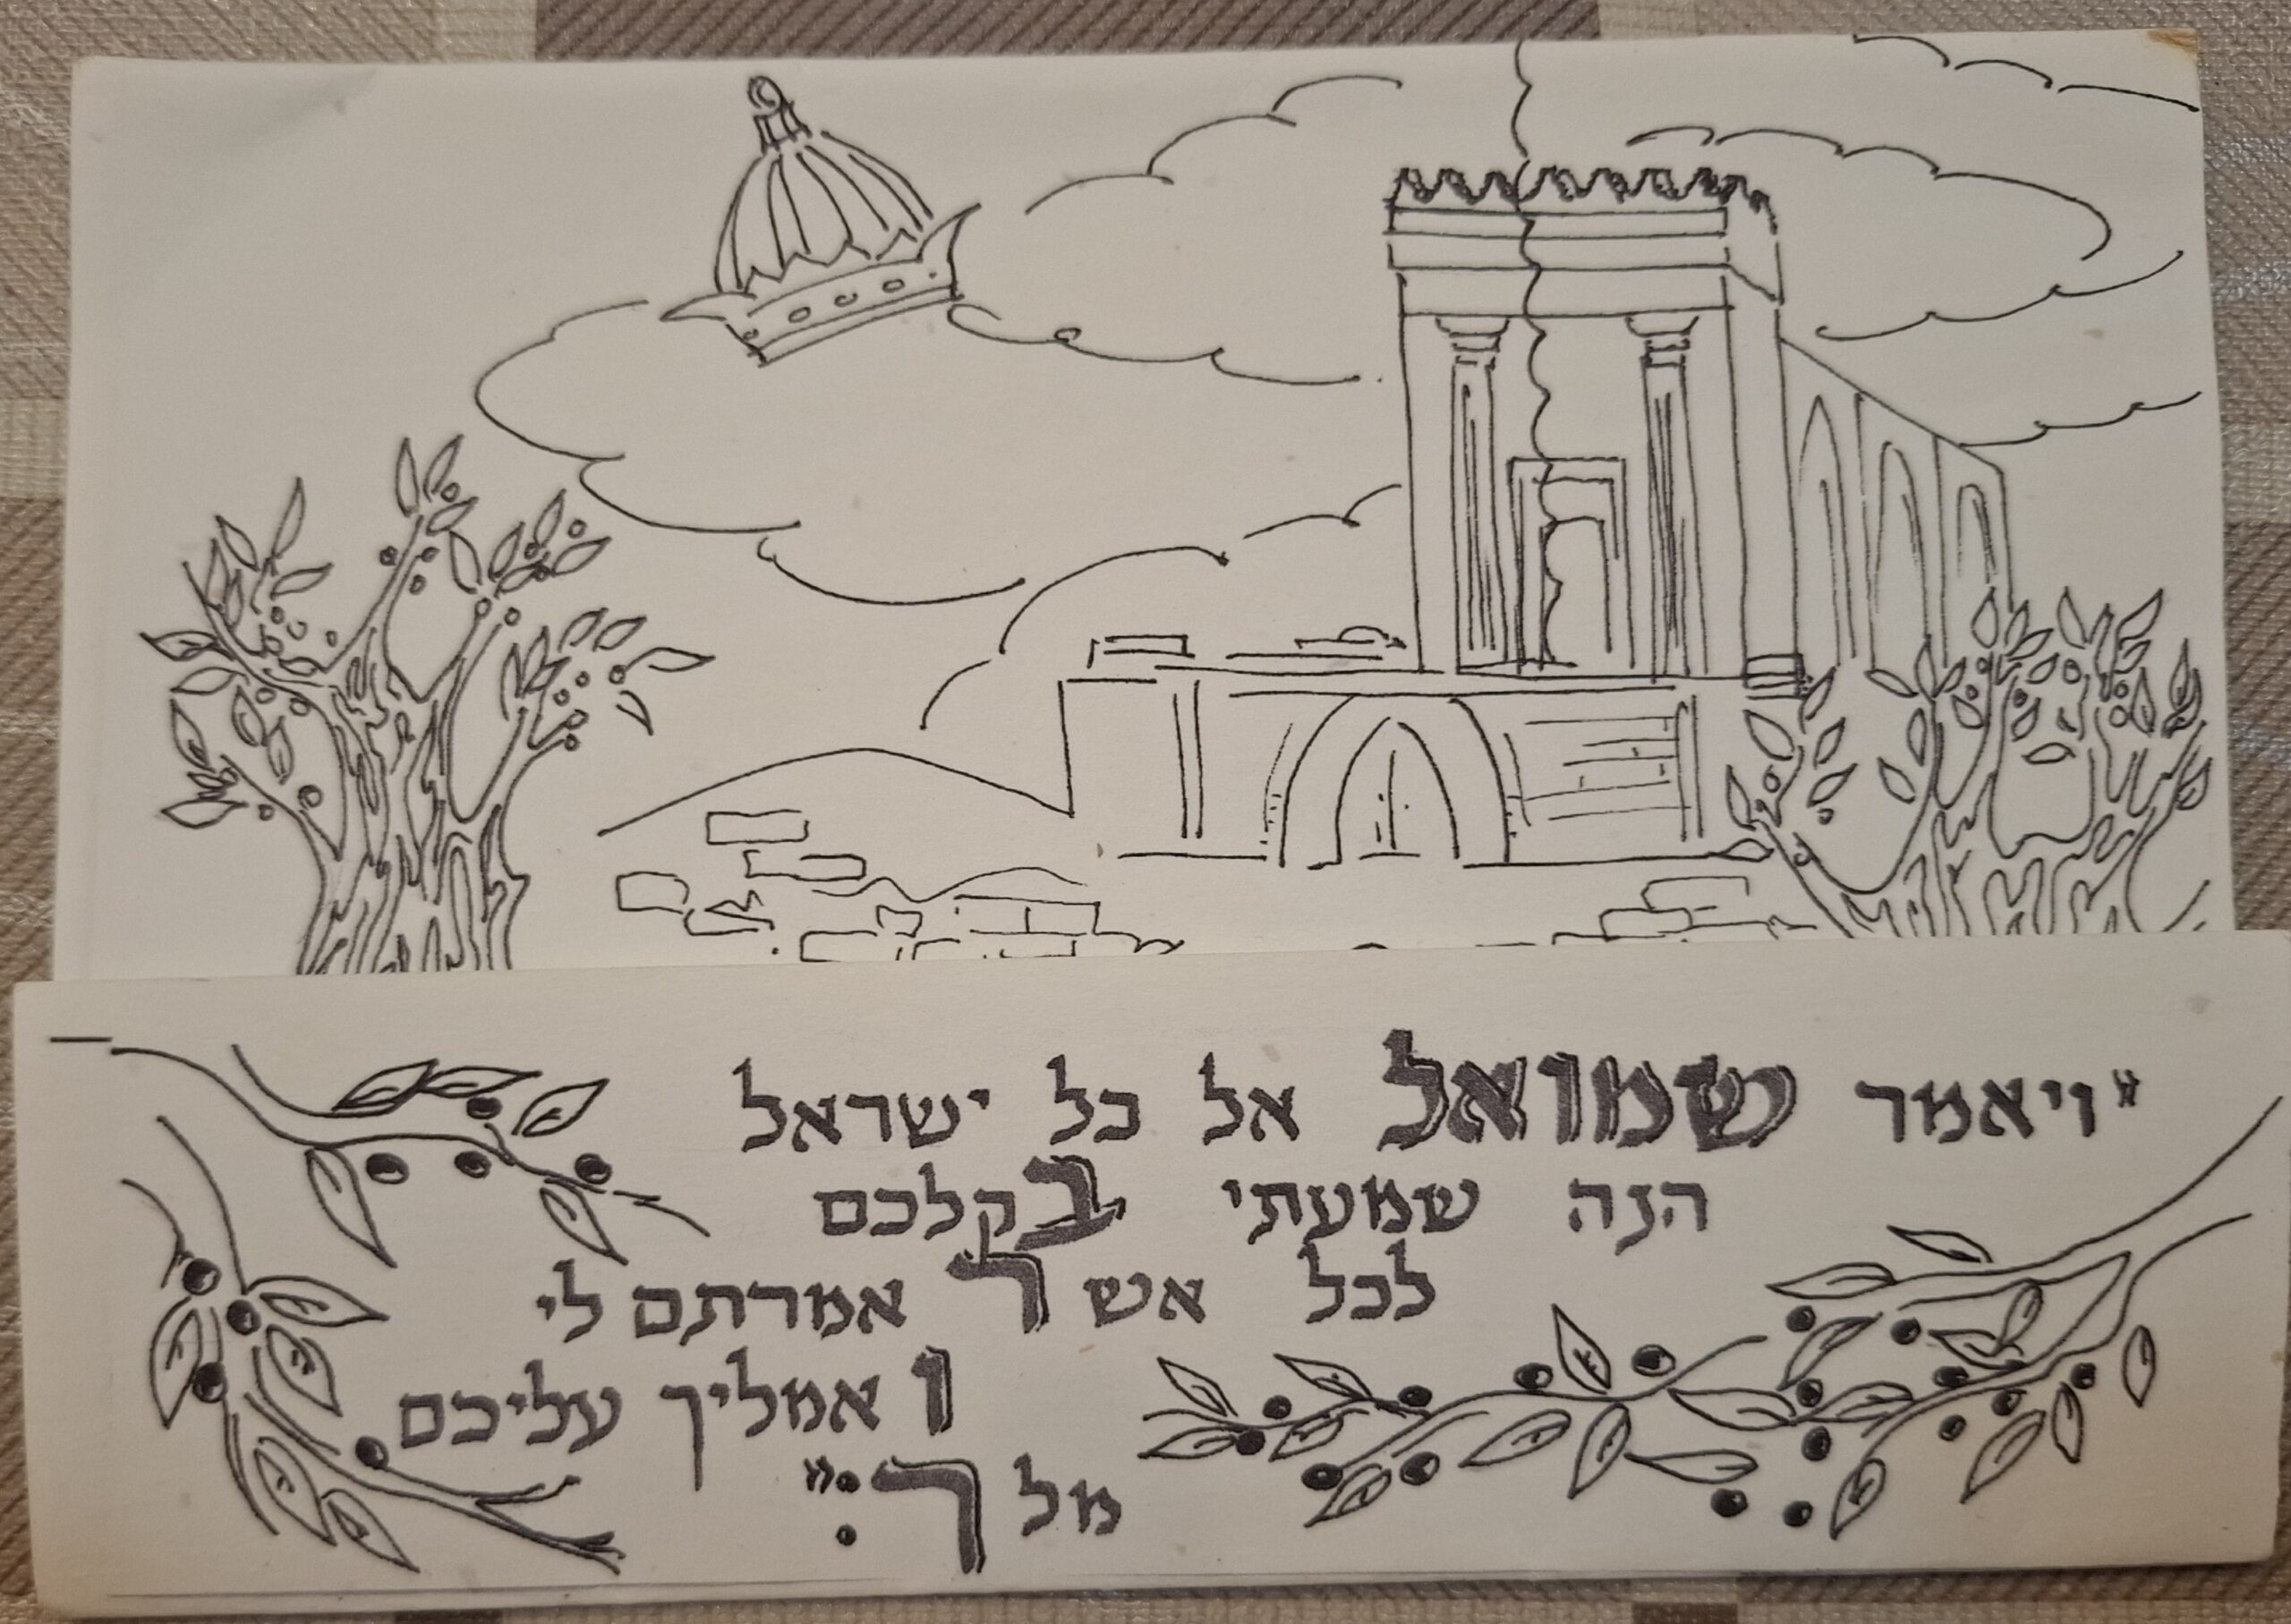 "ויאמר שמואל אל כל ישראל
הנה שמעתי בקלכם
לכל אשר אמרתם לי
ואמליך עליכם
מלך:"